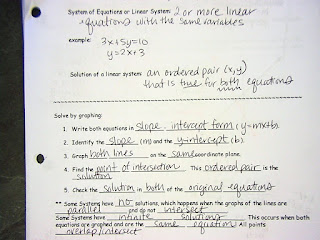 System of Equations or Linear System: 2 or more linear
equations with the same variables
example: 3x+5y=10
y=2x+3
Solution of a linear system: an ordered pair (x,y)
that is true for both equations
Solve by graphing:
1. Write both equations in slope-intercept form (y=mx+b).
2. Identify the slope (m) and the y-intercept (b).
3. Graph both lines on the same coordinate plane.
4. Find the point of intersection. This ordered pair is the
solution.
5. Check the solution in both of the original equations
** Some Systems have no solutions, which happens when the graphs of the lines are
parallel and do not intersect
Some Systems have infinite solutions. This occurs when both
equations are graphed and are the same equation. All points
overlap/intersect